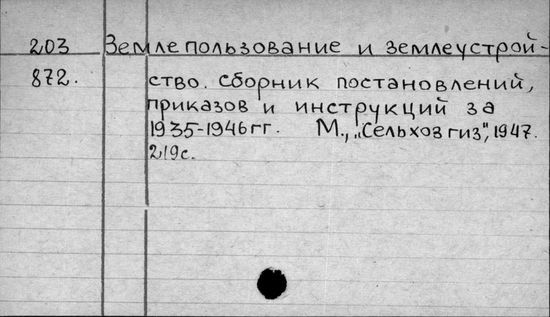 203 Землепользование и землеустрой-
872. ство. Сборник постановлений,
приказов и инструкций за
1935-1946гг. М., „Сельхозгиз", 1947.
219с.